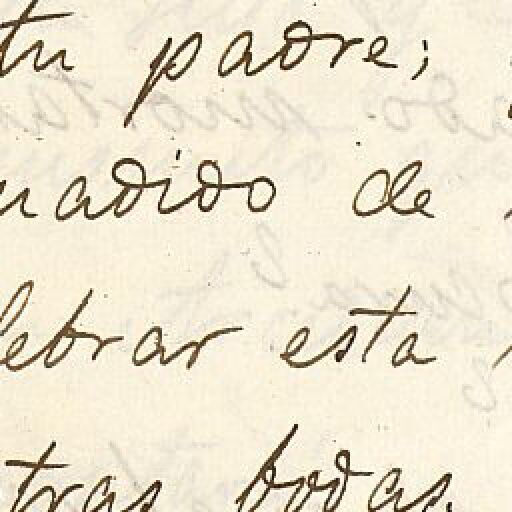 tu padre;
uadido de
lebrar esta
tras bodas.